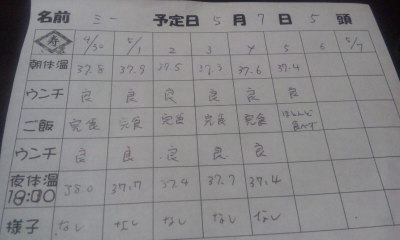 名前 ミー 予定日 5月7日 5頭
寿 4/30 5/1 2 3 4 5 6 5/7
朝体温 37.8 37.9 37.5 37.3 37.6 37.4
ウンチ 良 良 良 良 良 良
ご飯 完食 完食 完食 完食 完食 ほとんど食べず
ウンチ 良 良 良 良 良
夜体温 18:00 38.0 37.7 37.4 37.7 37.4
様子 なし なし なし なし なし